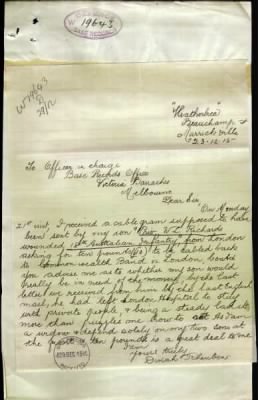 19643
BASE RECORDS
W19643
"Heatherbrea"
Beauchamp St
Marrickville
23.12.15
To Officer in charge
Base Records Office
Victoria Barracks
Melbourne
Dear Sir,
On Monday
21st inst, I received a cablegram supposed to have
been sent by my son "Priv. W. L. Richards
wounded, Australian Infantry, from London
asking for ten pounds (£10) to be cabled
to Commonwealth Bank in London, could
you advise me as to whether my son would
really be in need of the money, by the last
letter we received from him by the last English
mail, he had left London Hospital to stay
with private people, & being a steady lad it
more than puzzles me how to act. As I am
a widow & depend solely on my two sons at
the front & ten pounds is a great deal to me
I am
Yours truly,
Dinah